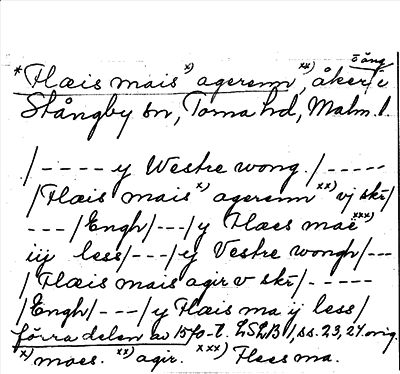 o äng
*Flæis mais x) agerenn xx), åker i
Stångby sn, Torna hd, Malm. l.
/ - - - - y Westre wong. / - - - - -
/ Flæis mais x) agerenn xx) vj skr/
- - - / Engh / - - - / y Flæes maë xxx)
iij less / - - - / y Vestre wongh / - - -
/ Flæis mais agir v skr / - - - - -
/ Engh / - - - / y Flæis ma ij less /
förra delen av 1570-t. LSLB 1, ss. 23, 24. orig.
x) maes. xx) agir. xxx) Flees ma.